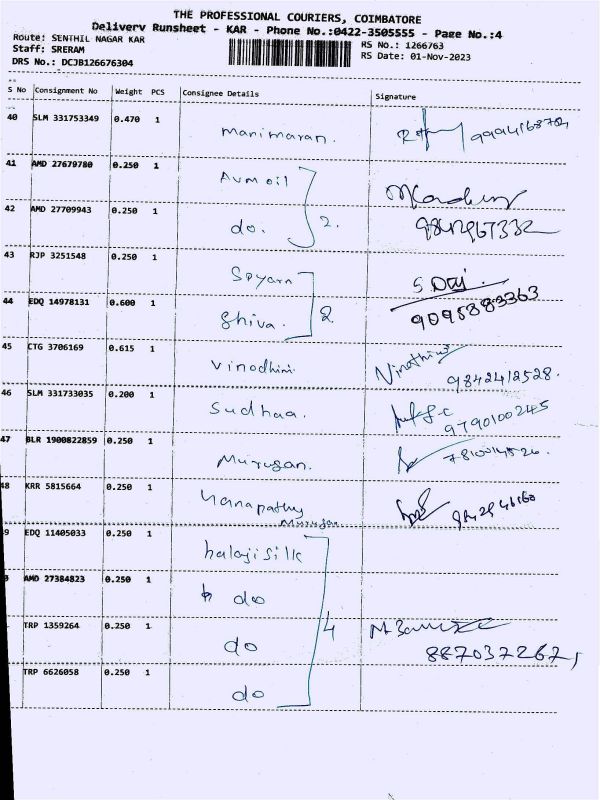 THE PROFESSIONAL COURIERS, COIMBATORE
Delivery Runsheet - KAR - Phone No.:0422-3505555 - Page No.:4
Route: SENTHIL NAGAR KAR
RS No.: 1266763
Staff: SRERAM
RS Date: 01-Nov-2023
DRS No.: DCJB126676304
S No Consignment No Weight PCS Consignee Details Signature
40 SLM 331753349 0.470 1 Manimaran.
41 AMD 27679780 0.250 1 Avm oil
42 AMD 27709943 0.250 1 do. 2. 9842967332
43 RJP 3251548 0.250 1 S.
44 EDQ 14978131 0.600 1 Shiva. 2 9095883363
45 CTG 3706169 0.615 1 Vinodhini 9842412528.
46 SLM 331733035 0.200 1 Sudhaa. 9790100245
47 BLR 1900822859 0.250 1 Murugan. 7810014526.
48 KRR 5815664 0.250 1
Murugan
9 EDQ 11405033 0.250 1 balaji silk
AMD 27384823 0.250 1 do
TRP 1359264 0.250 1 do 4 8870372671
TRP 6626058 0.250 1 do